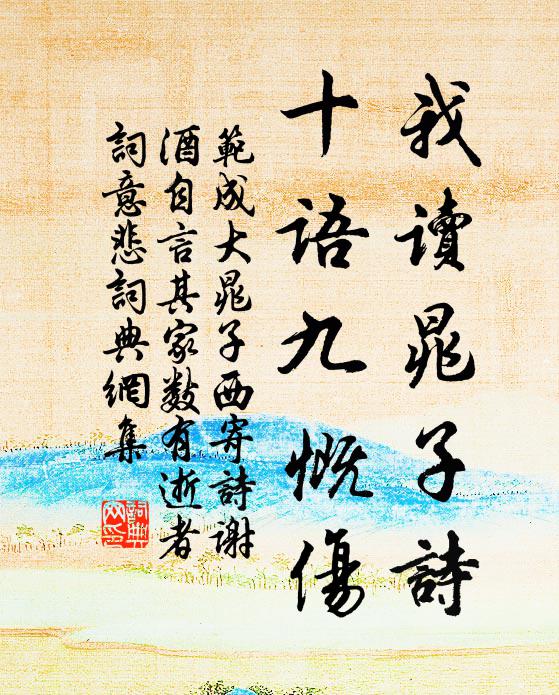 我讀晁子詩
十語九慨傷
範成大晁子西寄詩謝
酒自言其家數有逝者
詞意悲詞典網集
詞典網印